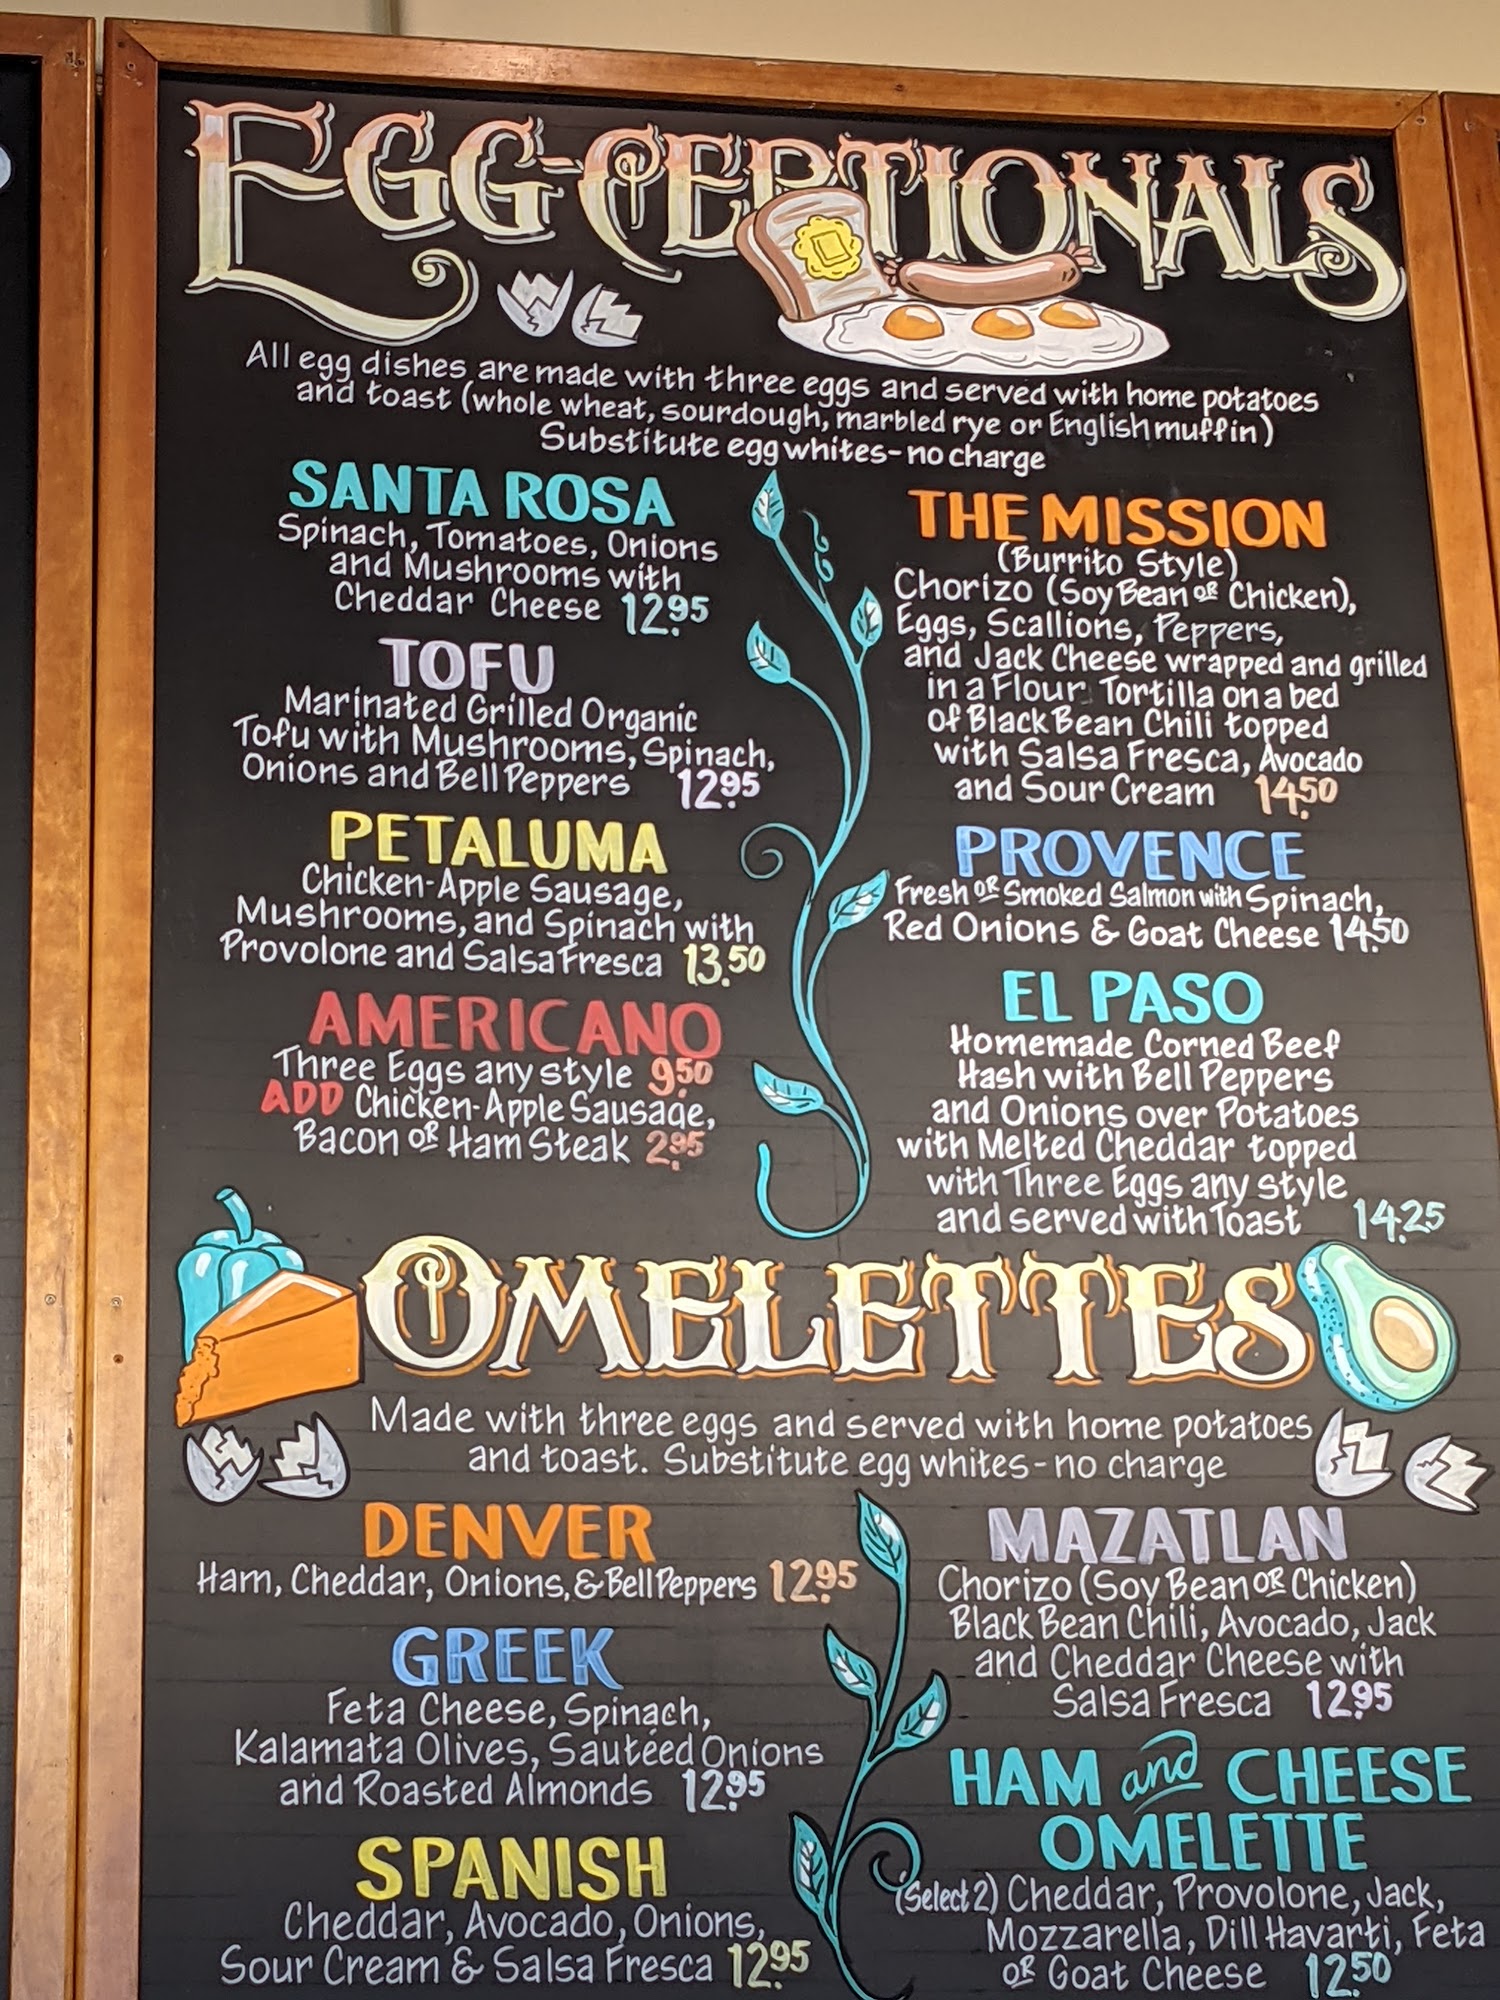 EGG-CEPTIONALS
All egg dishes are made with three eggs and served with home potatoes
and toast (whole wheat, sourdough, marbled rye or English muffin)
Substitute egg whites - no charge
SANTA ROSA
Spinach, Tomatoes, Onions
and Mushrooms with
Cheddar Cheese 12.95
TOFU
Marinated Grilled Organic
Tofu with Mushrooms, Spinach,
Onions and Bell Peppers 12.95
PETALUMA
Chicken-Apple Sausage,
Mushrooms, and Spinach with
Provolone and Salsa Fresca 13.50
AMERICANO
Three Eggs any style 9.50
ADD Chicken-Apple Sausage,
Bacon OR Ham Steak 2.95
THE MISSION
(Burrito Style)
Chorizo (Soy Bean OR Chicken),
Eggs, Scallions, Peppers,
and Jack Cheese wrapped and grilled
in a Flour Tortilla on a bed
of Black Bean Chili topped
with Salsa Fresca, Avocado
and Sour Cream 14.50
PROVENCE
Fresh OR Smoked Salmon with Spinach,
Red Onions & Goat Cheese 14.50
EL PASO
Homemade Corned Beef
Hash with Bell Peppers
and Onions over Potatoes
with Melted Cheddar topped
with Three Eggs any style
and served with Toast 14.25
OMELETTES
Made with three eggs and served with home potatoes
and toast. Substitute egg whites - no charge
DENVER
Ham, Cheddar, Onions, & Bell Peppers 12.95
GREEK
Feta Cheese, Spinach,
Kalamata Olives, Sautéed Onions
and Roasted Almonds 12.95
SPANISH
Cheddar, Avocado, Onions,
Sour Cream & Salsa Fresca 12.95
MAZATLAN
Chorizo (Soy Bean OR Chicken)
Black Bean Chili, Avocado, Jack
and Cheddar Cheese with
Salsa Fresca 12.95
HAM and CHEESE
OMELETTE
(Select 2) Cheddar, Provolone, Jack,
Mozzarella, Dill Havarti, Feta
OR Goat Cheese 12.50